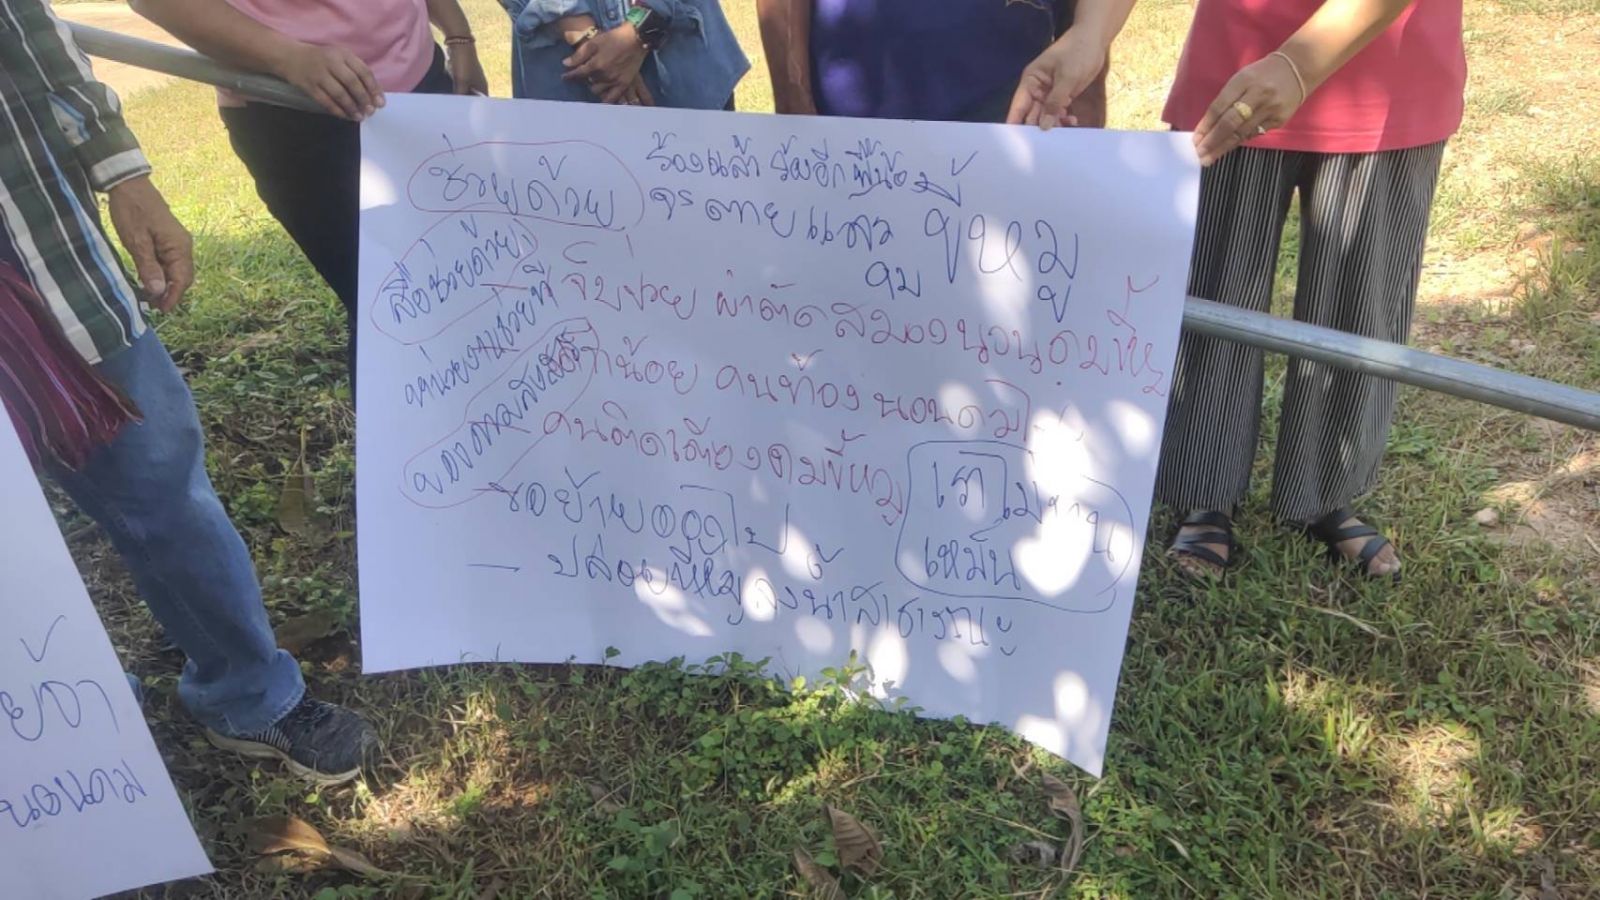 ช่วยด้วย
ร้องแล้ว ร้องอีก พี่น้อง
จะตายแล้ว ขี้หมู
สื่อช่วยด้วย
หน่วยงานช่วยที
เจ็บป่วย ผ่าตัดสมองนอนดม
น้อย คนท้อง นอนดม
คนติดเตียงดมขี้หมู
เราไม่ทาน
เหม็น
ขอย้ายออกไป
— ปล่อยขี้หมูลงน้ำสาธารณะ
นอนดม